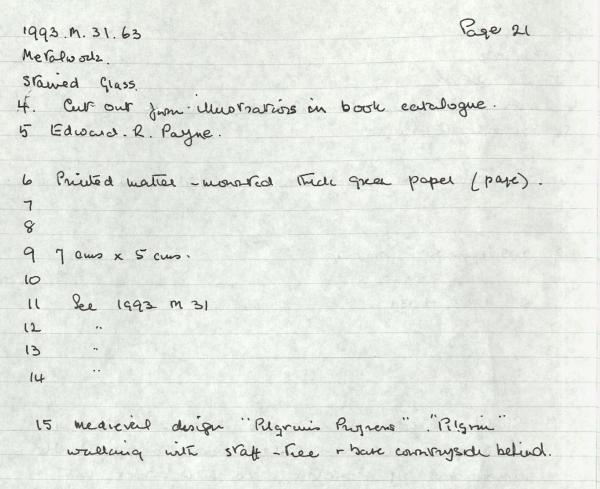 1993.M.31.63 Page 21
Metalwork.
Stained Glass.
4. Cut out from illustrations in book catalogue.
5 Edward. R. Payne.
6 Printed matter - mounted thick green paper (page).
7
8
9 7 cms x 5 cms.
10
11 See 1993 M 31
12 "
13 "
14 "
15 medieval design "Pilgrims Progress". "Pilgrim"
walking with staff - tree + bare countryside behind.